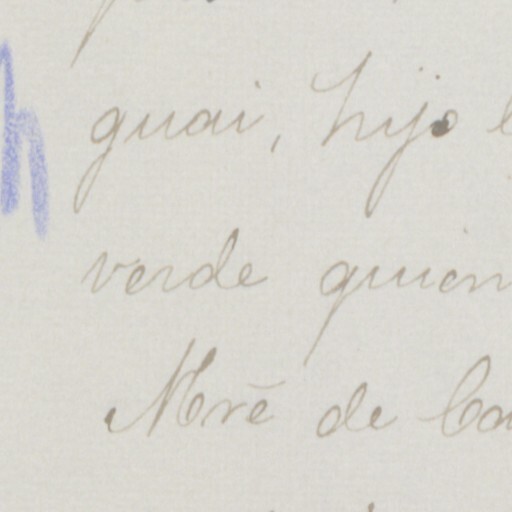 h
guai, hijo
verde quien
Mrē de